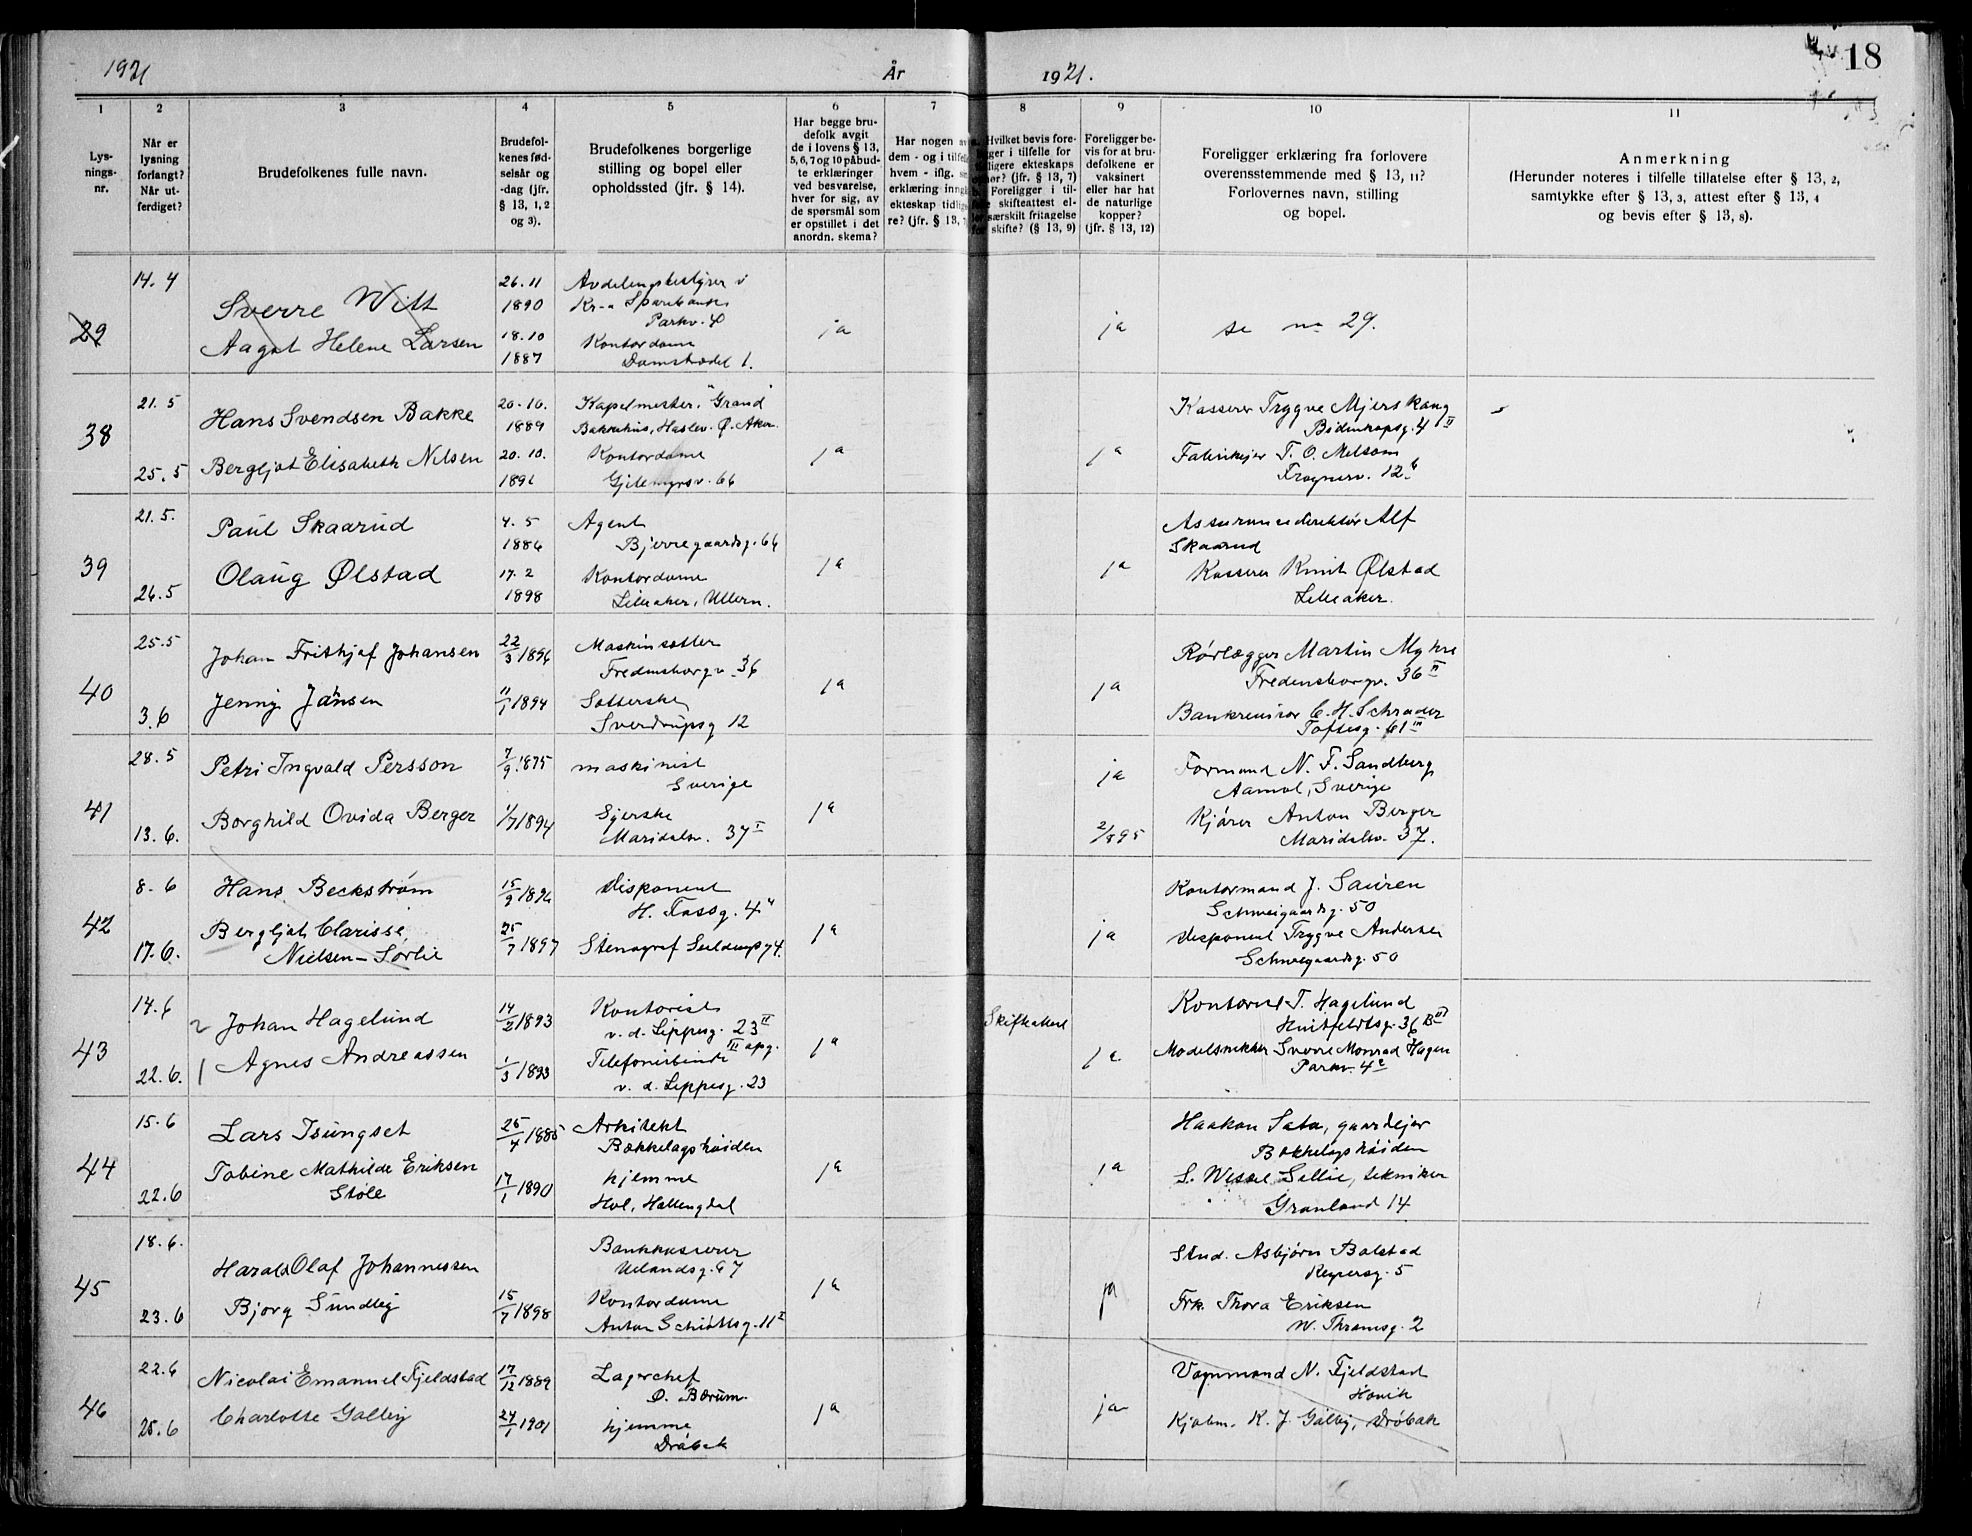 1921 År 1921. 18
1 2 3 4 5 6 7 8 9 10 11
Lys-
nings-
nr.
Når er
lysning
forlangt?
Når ut-
ferdiget?
Brudefolkenes fulle navn.
Brudefol-
kenes fød-
selsår og
-dag (jfr.
§ 13, 1, 2
og 3).
Brudefolkenes borgerlige
stilling og bopel eller
opholdssted (jfr. § 14).
Har begge bru-
defolk avgit
de i lovens § 13,
5, 6, 7 og 10 påbud-
te erklæringer
ved besvarelse,
hver for sig, av
de spørsmål som
er opstillet i det
anordn. skema?
Har nogen av
dem - og i tilfelle
hvem - iflg.
erklæring inng
ekteskap tidlig
re? (jfr. § 13,
Hvilket bevis fore-
ligger i tilfelle for
tidligere ekteskaps
ophør? (jfr. § 13, 7)
Foreligger i til-
felle skifteattest el-
ler særskilt fritagelse
for skifte? (§ 13, 9)
Foreligger be-
vis for at bru-
defolkene er
vaksinert
eller har hat
de naturlige
kopper?
(jfr. § 13, 12)
Foreligger erklæring fra forlovere
overensstemmende med § 13, 11?
Forlovernes navn, stilling
og bopel.
Anmerkning
(Herunder noteres i tilfelle tillatelse efter § 13, 2,
samtykke efter § 13, 3, attest efter § 13, 4
og bevis efter § 13, 8).
29
14. 4
Sverre Witt
Aagot Helene Larsen
26. 11
1890
18. 10
1887
Avdelingsbestyrer i
Kr-a Sparebank
Parkv. 4
Kontordame
Damstrædet 1.
ja
ja
se nr 29.
38
21. 5
25. 5
Hans Svendsen Bakke
Bergljot Elisabeth Nilsen
20. 10.
1889
20. 10.
189
Kapelmester, "Grand"
Bakkehus, Haslev. Ø. Aker
Kontordame
Gjetemyrsv. 66
ja
ja
Kasserer Trygve Mjerskaug
4 II
Fabrikejer T. O. Melsom
Frognerv. 12 b
39
21. 5.
26. 5
Paul Skaarud
Olaug Ølstad
4. 5
1886
17. 2
1898
Agent
Bjerregaardsg. 64
Kontordame
Lilleaker, Ullern.
ja
ja
Assurancedirektør Alf
Skaarud
Kasserer Knut Ølstad
Lilleaker.
40
25. 5
3. 6
Johan Frithjof Johansen
Jenny Jansen
22/3 1896
11/1 1894
Maskinsætter
Fredensborgv. 36
Sætterske
Sverdrupsg 12
ja
ja
Rørlægger Martin Myhre
Fredensborgv. 36 II
Bankrevisor C. H. Schrader
Toftesg. 61 III
41
28. 5
13. 6.
Petri Ingvald Persson
Borghild Ovida Berger
7/9 1875
1/7 1894
maskinist
Sverige
Syerske
Maridalsv. 37 I
ja
ja
2/8 95
Formand N. F. Sandberg
Aamol, Sverige
Kjører Anton Berger
Maridalsv. 37.
42
8. 6
17. 6.
Hans Beckstrøm
Bergljot Clarisse
Nielsen-Sørlie
15/9 1896
25/7 1897
disponent
H. Fossg. 4 II
Stenograf Seilduksg 74.
ja
ja
Kontormand J. Sauren
Schweigaardsg. 50
disponent Trygve Andersen
Schweigaardsg. 50
43
14. 6
22. 6.
2 Johan Hagelund
1 Agnes Andreassen
14/2 1893
1/3 1893
Kontorist
v. d. Lippesg. 23 II
III opg.
Telefonistinde
v. d. Lippesg. 23
ja
Skifteattest
ja
Kontorist T. Hagelund
Huitfeldtsg. 36 B III
Modelsnekker Sverre Monrad Hagen
Parkv. 4 c
44
15. 6
22. 6
Lars Tsungset
Tobine Mathilde Eriksen
Støle
25/4 1885
17/1 1890
Arkitekt
Bækkelagshøiden
hjemme
Hol, Hallingdal
ja
ja
Haakon Sata, gaardejer
Bækkelagshøiden
S. Wessel Sellie, tekniker
Grønland 14
45
18. 6.
23. 6
Harald Olaf Johannessen
Bjorg Sundby
15/7 1898
Bankkasserer
Uelandsg. 67
Kontordame
Anton Schiøttsg. 11 I
ja
ja
Stud. Asbjørn Bolstad
Keysersg. 5
Frk. Thora Eriksen
W. Thranesg. 2
46
22. 6
25. 6
Nicolai Emanuel Fjeldstad
Charlotte Galby
17/12 1889
24/1 1901
Lagerchef
Ø. Bærum
hjemme
Drøbak
ja
ja
Vognmand N. Fjeldstad
Høvik
Kjøbm. K. J. Galby, Drøbak